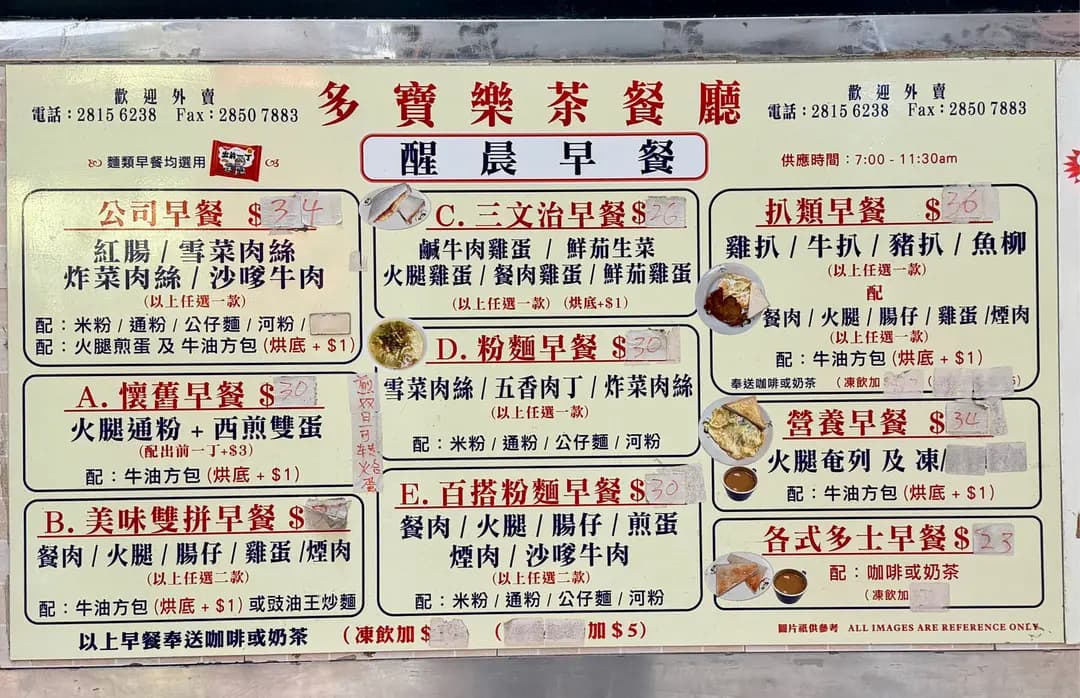 歡迎外賣
電話：2815 6238 Fax：2850 7883
多寶樂茶餐廳
歡迎外賣
電話：2815 6238 Fax：2850 7883
醒晨早餐
麵類早餐均選用
出前一丁
供應時間：7:00 - 11:30am
公司早餐 $34
紅腸 / 雪菜肉絲
炸菜肉絲 / 沙嗲牛肉
(以上任選一款)
配：米粉 / 通粉 / 公仔麵 / 河粉 /
配：火腿煎蛋 及 牛油方包 (烘底 + $1)
A. 懷舊早餐 $30
火腿通粉 + 西煎雙蛋
(配出前一丁+$3)
配：牛油方包 (烘底 + $1)
煎双旦可轉炒蛋
B. 美味雙拼早餐 $
餐肉 / 火腿 / 腸仔 / 雞蛋 /煙肉
(以上任選二款)
配：牛油方包 (烘底 + $1) 或豉油王炒麵
C. 三文治早餐 $26
鹹牛肉雞蛋 / 鮮茄生菜
火腿雞蛋 / 餐肉雞蛋 / 鮮茄雞蛋
(以上任選一款) (烘底+$1)
D. 粉麵早餐 $30
雪菜肉絲 / 五香肉丁 / 炸菜肉絲
(以上任選一款)
配：米粉 / 通粉 / 公仔麵 / 河粉
E. 百搭粉麵早餐 $30
餐肉 / 火腿 / 腸仔 / 煎蛋
煙肉 / 沙嗲牛肉
(以上任選二款)
配：米粉 / 通粉 / 公仔麵 / 河粉
扒類早餐 $36
雞扒 / 牛扒 / 豬扒 / 魚柳
(以上任選一款)
配
餐肉 / 火腿 / 腸仔 / 雞蛋 /煙肉
(以上任選一款)
配：牛油方包 (烘底 + $1)
奉送咖啡或奶茶 (凍飲加 $
營養早餐 $34
火腿奄列 及 凍/
配：牛油方包 (烘底 + $1)
各式多士早餐 $23
配：咖啡或奶茶
(凍飲加
以上早餐奉送咖啡或奶茶 (凍飲加 $ ( 加 $5)
圖片祇供參考 ALL IMAGES ARE REFERENCE ONLY